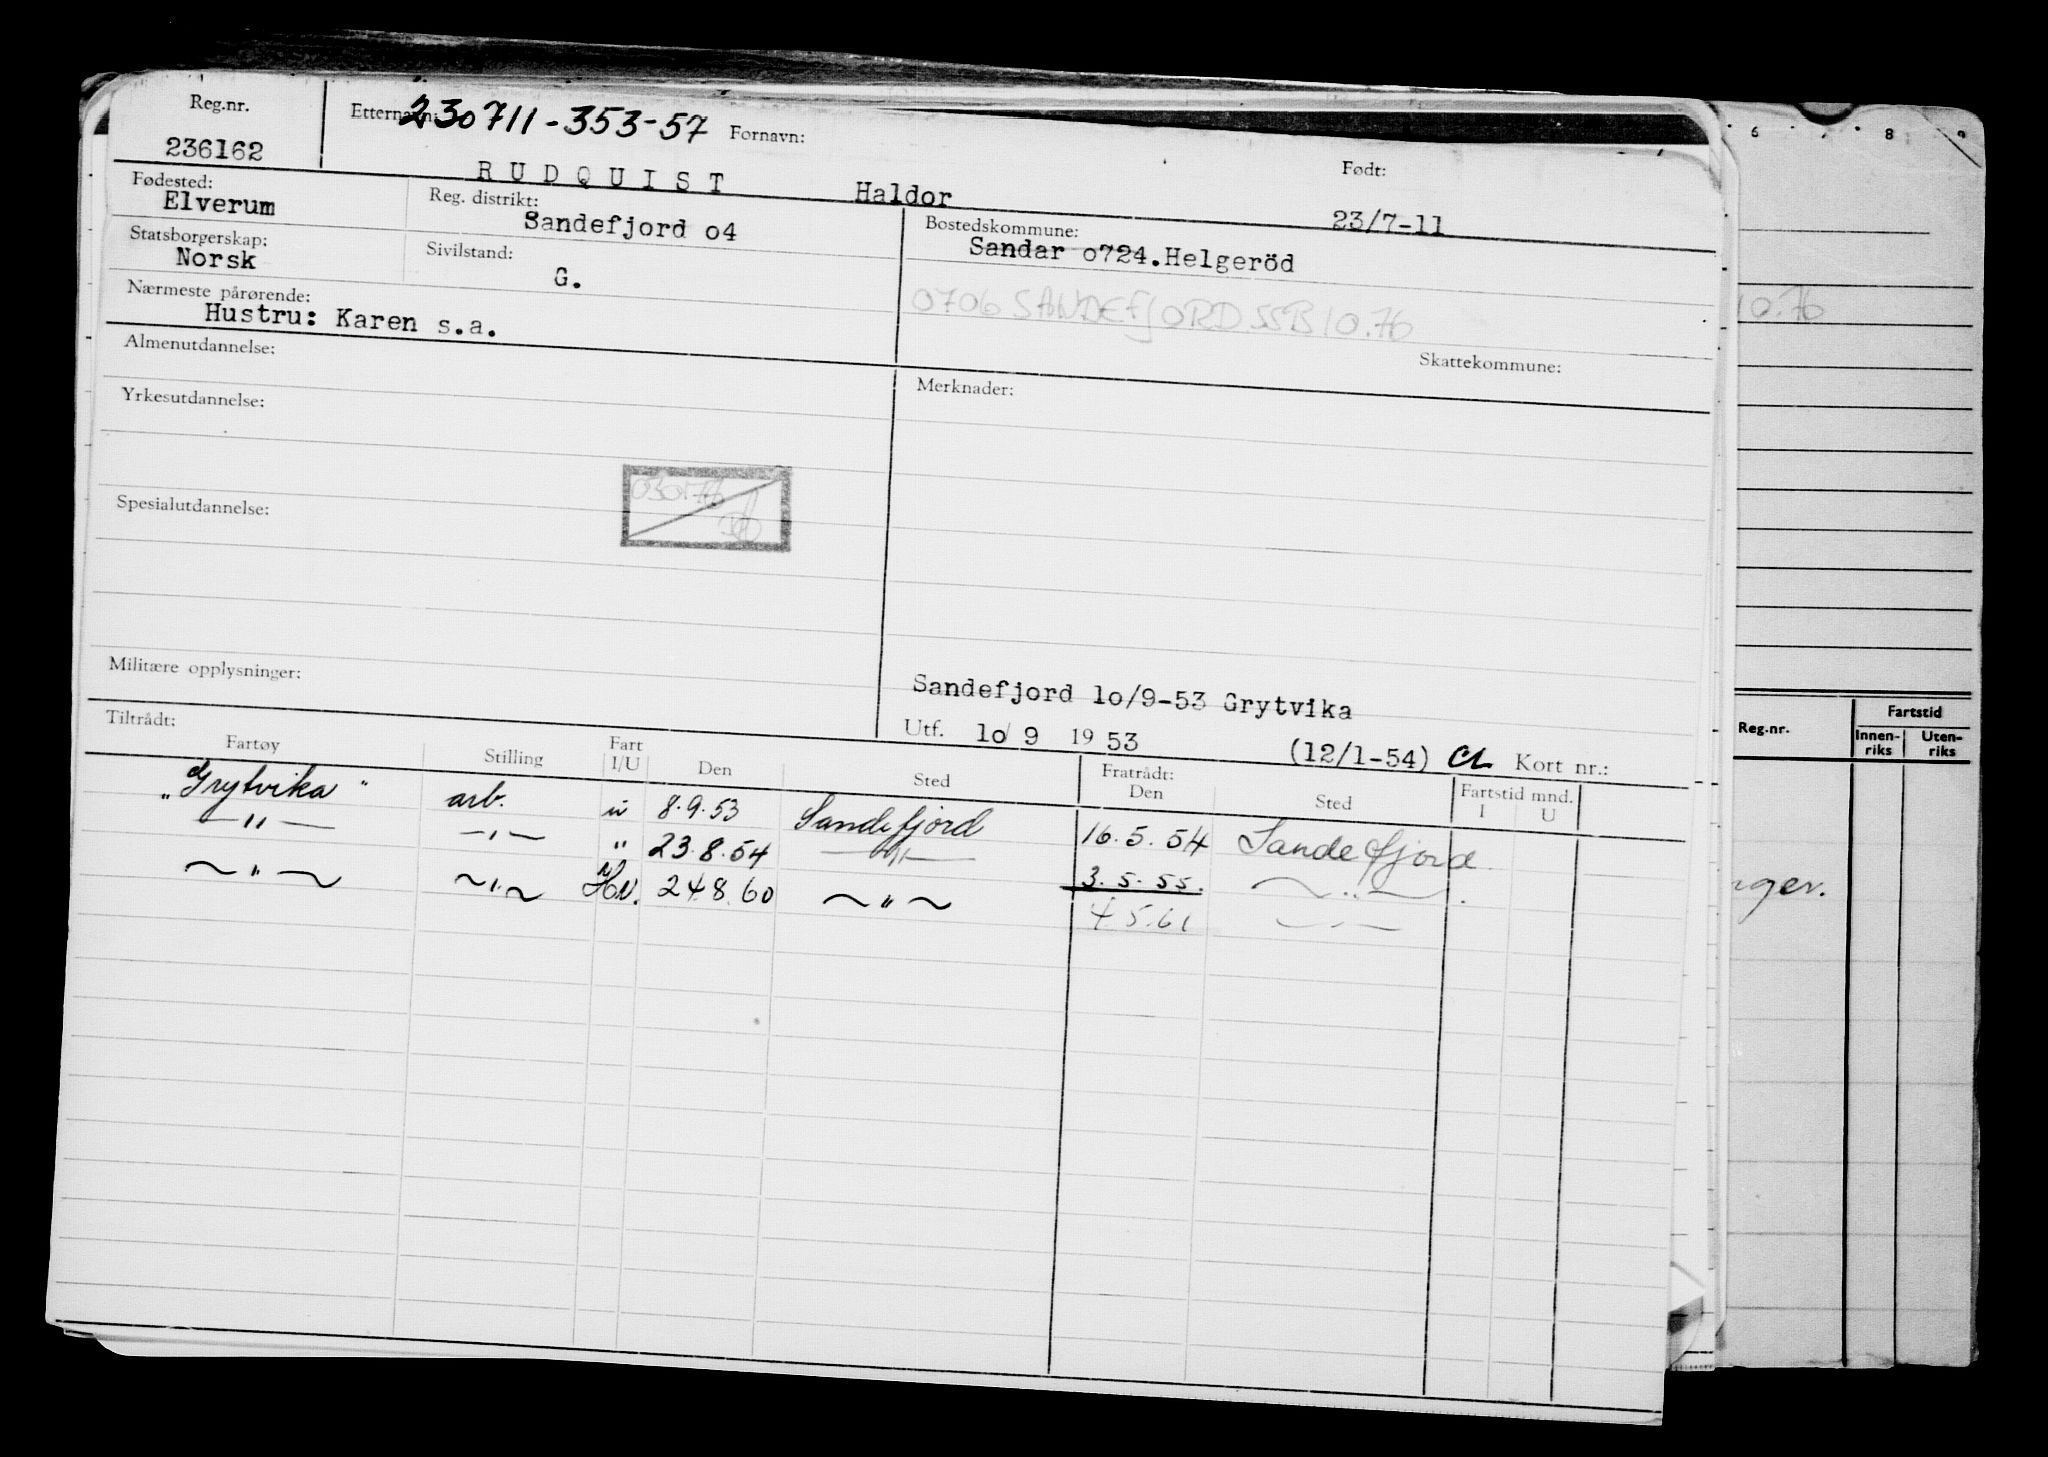 Reg.nr. Etternavn: 230711-353-57 Fornavn: Født:
236162 RUDQUIST Haldor 23/7-11
Fødested: Reg. distrikt: Bostedskommune:
Elverum Sandefjord o4 Sandar o724.Helgeröd
Statsborgerskap: Sivilstand:
Norsk G.
0706 SANDEFJORD SSB 10.76
Nærmeste pårørende:
Hustru: Karen s.a.
Skattekommune:
Almenutdannelse: Merknader:
Yrkesutdannelse:
Spesialutdannelse:
Militære opplysninger:
Sandefjord lo/9-53 Grytvika
Utf. lo/ 9 19 53 (12/1-54) Kort nr.:
Tiltrådt: Fratrådt:
Fartøy Stilling Fart I/U Den Sted Den Sted Fartstid mnd. I U
"Grytvika" arb. u 8.9.53 Sandefjord 16.5.54 Sandefjord
—"— —"— " 23.8.54 —"— 3.5.55. ~"~
~"~ ~"~ Hv. 24.8.60 ~"~ 4.5.61 —"—
6 8 9
10.76
Reg.nr. Fartstid
Innen-riks Uten-riks
nger.